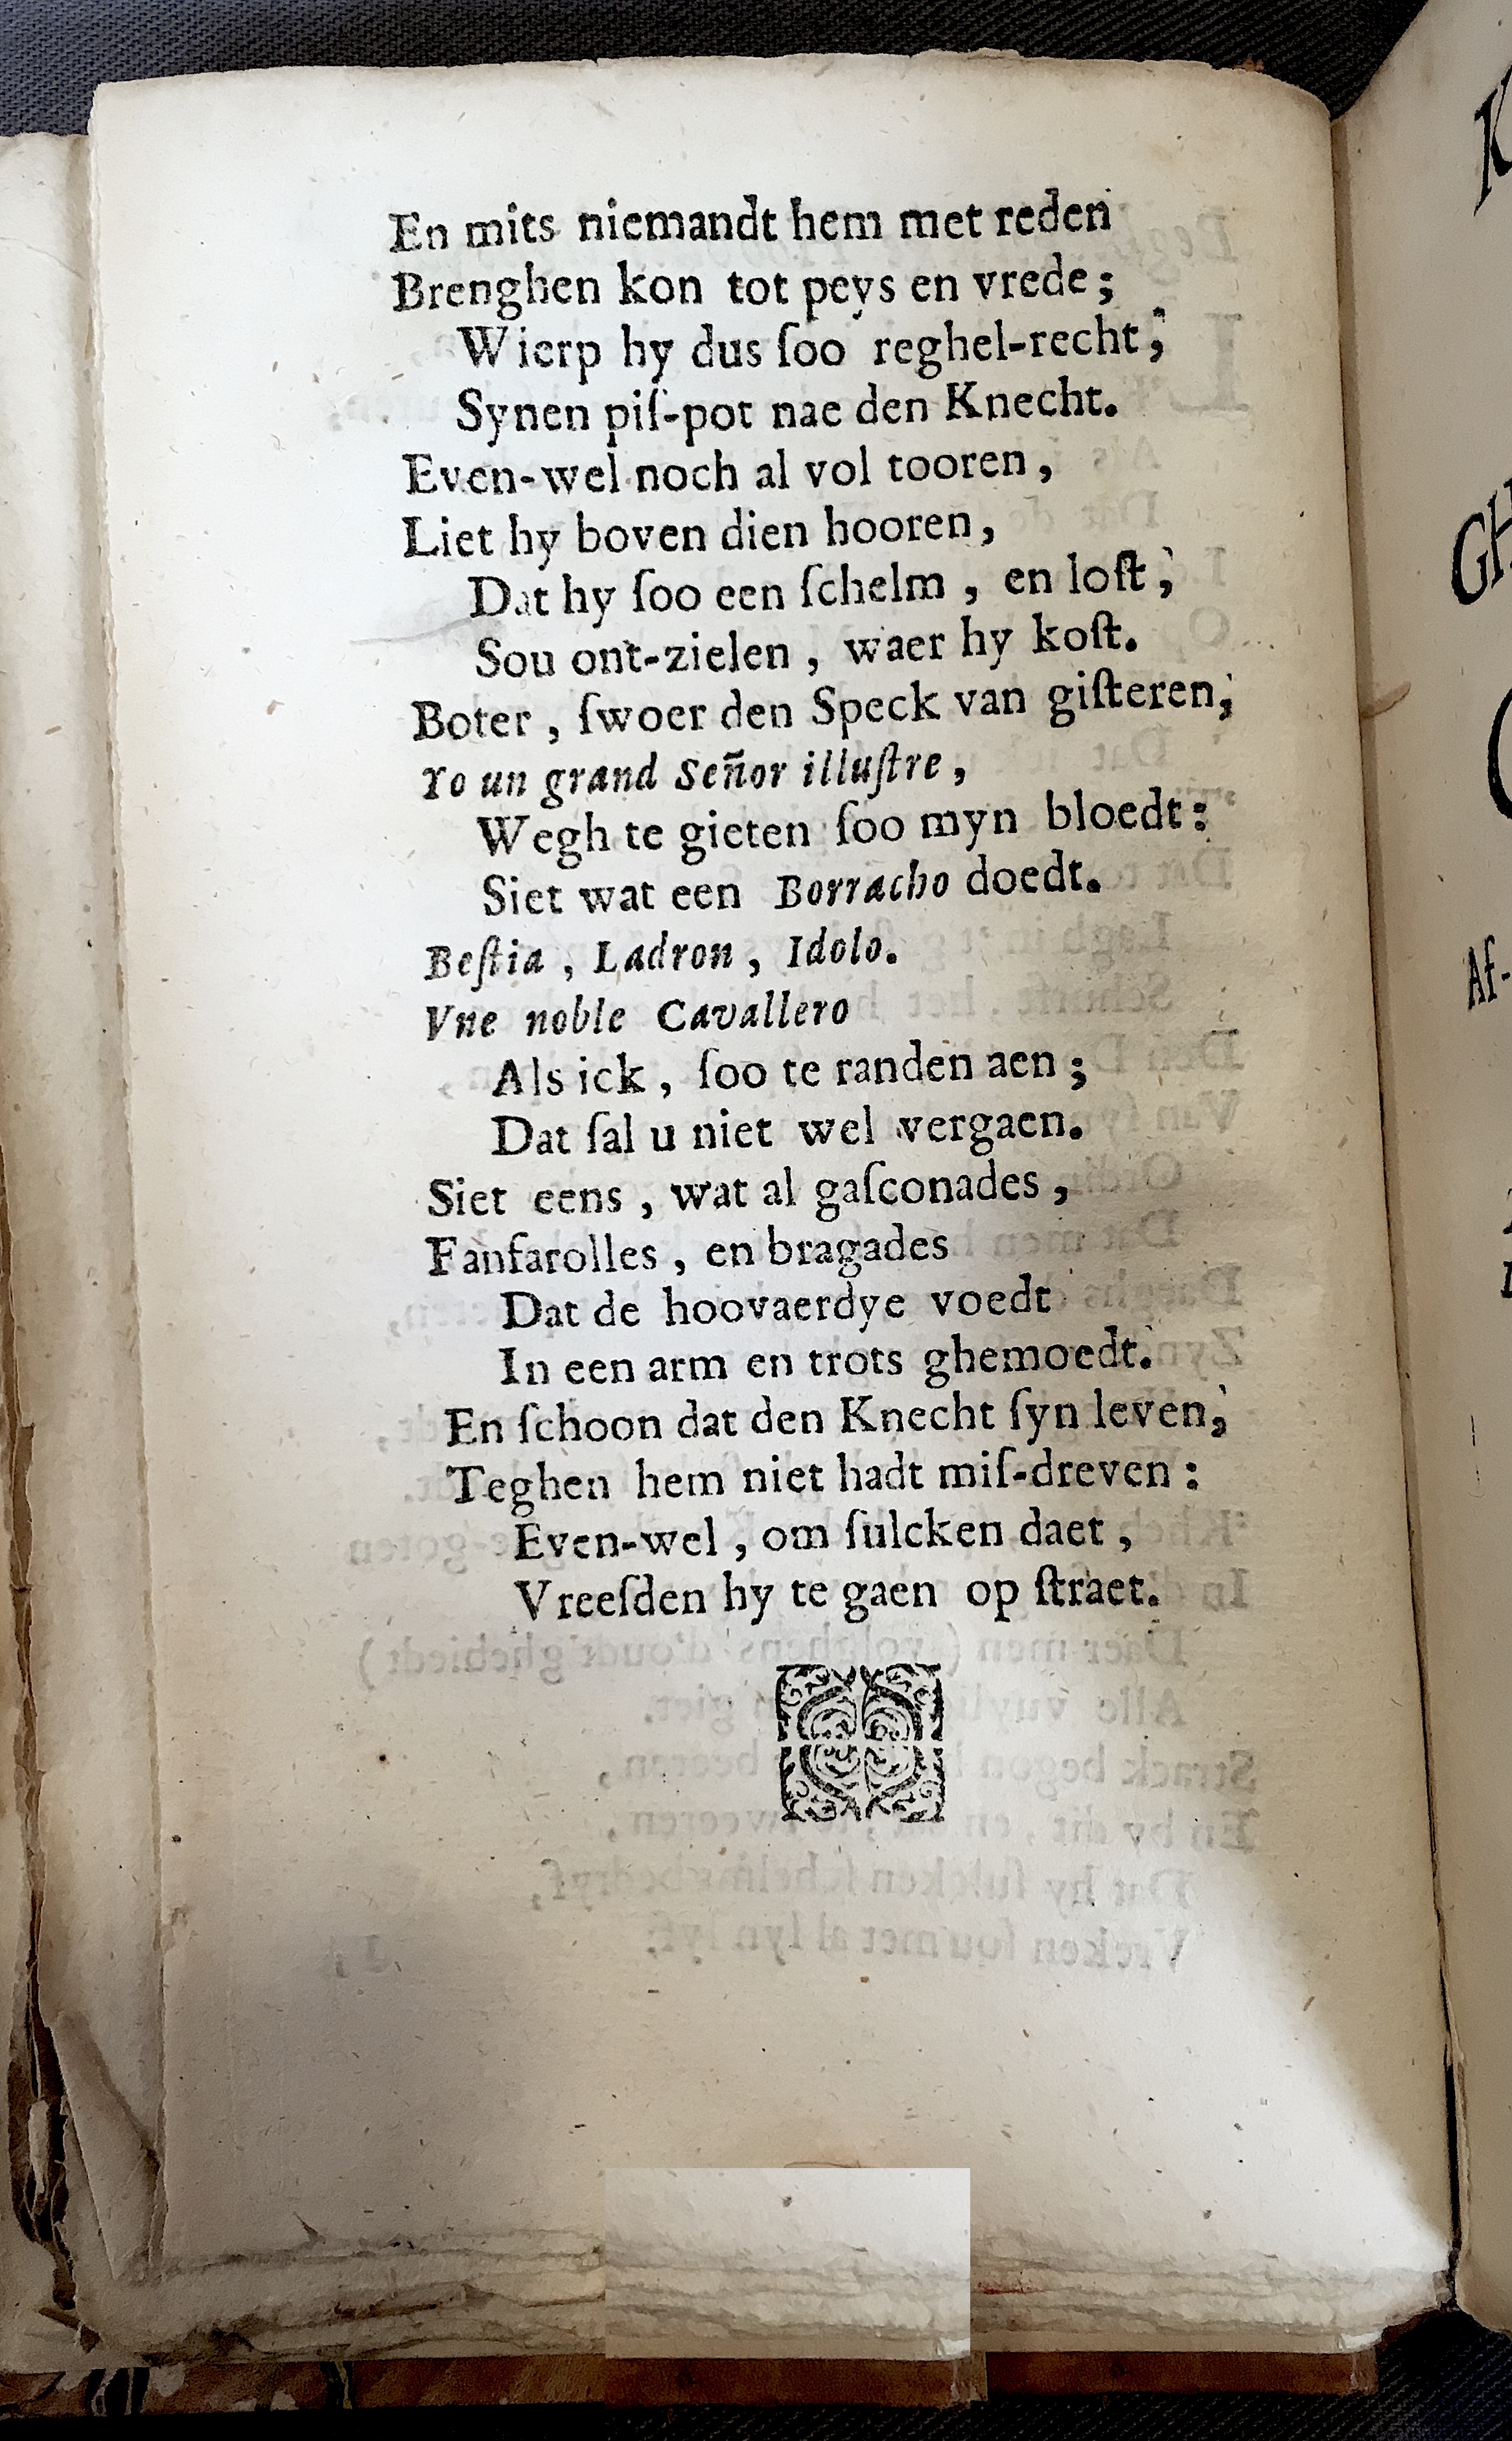 En mits niemandt hem met reden
Brenghen kon tot peys en vrede;
Wierp hy dus ſoo reghel-recht,
Synen piſ-pot nae den Knecht.
Even-wel noch al vol tooren,
Liet hy boven dien hooren,
Dat hy ſoo een ſchelm, en loſt,
Sou ont-zielen, waer hy koſt.
Boter, ſwoer den Speck van giſteren,
Yo un grand Señor illuſtre,
Wegh te gieten ſoo myn bloedt:
Siet wat een Borracho doedt.
Beſtia, Ladron, Idolo.
Vne noble Cavallero
Als ick, ſoo te randen aen;
Dat ſal u niet wel vergaen.
Siet eens, wat al gaſconades,
Fanfarolles, en bragades
Dat de hoovaerdye voedt
In een arm en trots ghemoedt.
En ſchoon dat den Knecht ſyn leven,
Teghen hem niet hadt miſ-dreven:
Even-wel, om ſulcken daet,
Vreeſden hy te gaen op ſtraet.
K
GH
Af-